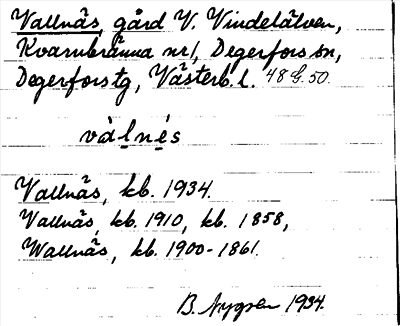 Vallnäs, gård V. Vindelälven,
Kvarnbränna nr 1, Degerfors sn,
Degerfors tg, Västerb. l. 48 G. 50.
vàl̠nẹs
Vallnäs, kb. 1934.
Vallnäs, kb. 1910, kb. 1858,
Wallnäs, kb. 1900-1861.
B. Nygren 1934.